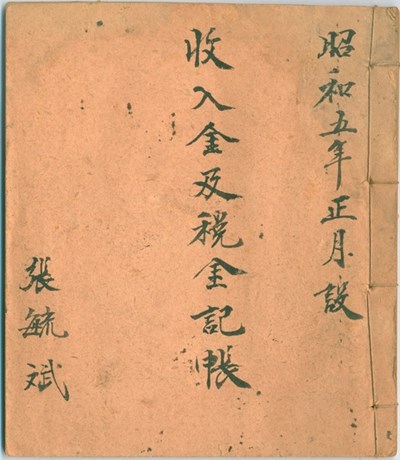 昭和五年正月設
收入金及税金記帳
張毓斌